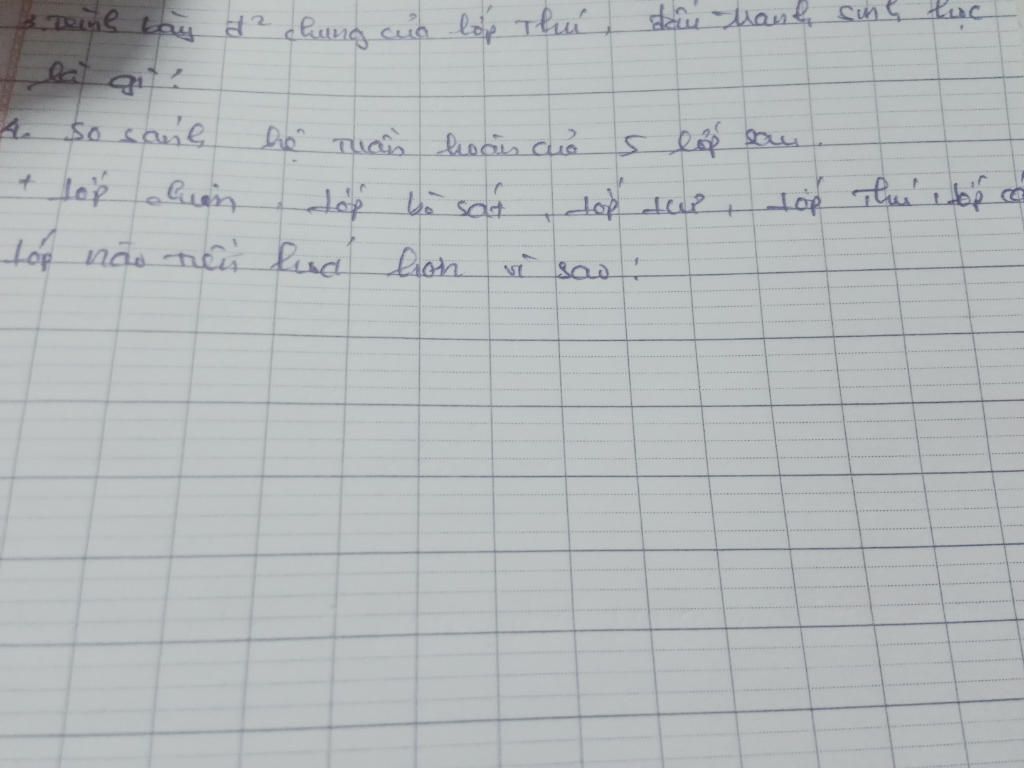 3 Trình bày đ² chung của lớp Thú, đấu
là gì?
4. So sánh hệ tuần hoàn của 5 lớp sau.
+ lớp chim, lớp bò sát, lớp lưỡng, lớp Thú, lớp cá
lớp nào tiến hoá hơn vì sao?